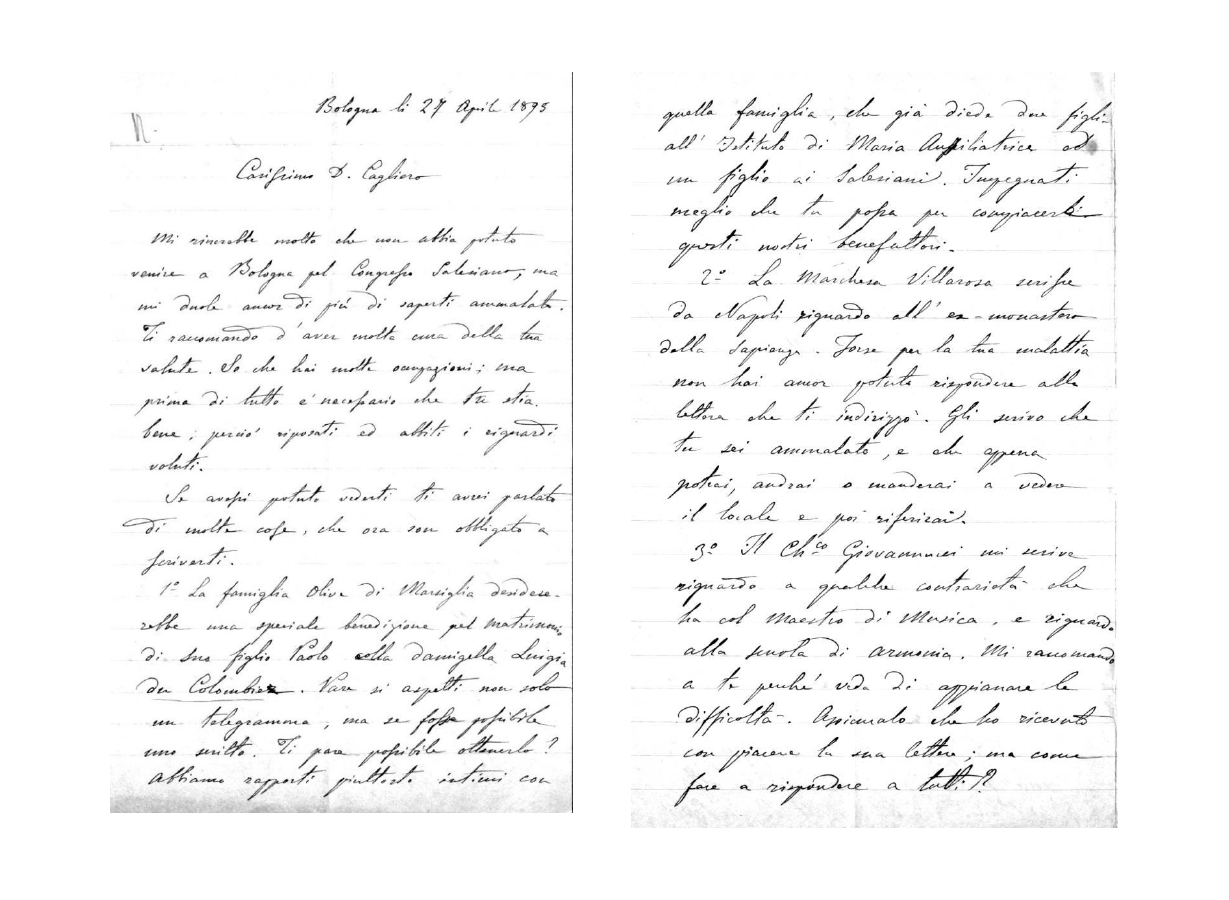 Bologna li 27 Aprile 1895
N.
Carissimo D. Cagliero
Mi rincrebbe molto che non abbia potuto
venire a Bologna pel Congresso Salesiano, ma
mi duole ancor di più di saperti ammalato.
Ti raccomando d'aver molta cura della tua
salute. So che hai molte occupazioni; ma
prima di tutto è necessario che tu stia
bene; perciò riposati ed abbiti i riguardi
voluti.
Se avessi potuto vederti ti avrei parlato
di molte cose, che ora son obbligato a
scriverti.
1º La famiglia Olive di Marsiglia desidere-
rebbe una speciale benedizione pel matrimonio
di suo figlio Paolo colla damigella Luigia
du Colombier. Pare si aspetti non solo
un telegramma, ma se fosse possibile
uno scritto. Ti pare possibile ottenerlo?
Abbiamo rapporti piuttosto intimi con
quella famiglia, che già diede due figlie
all' Istituto di Maria Ausiliatrice ed
un figlio ai Salesiani. Impegnati
meglio che tu possa per compiacerli
questi nostri benefattori.
2º La Marchesa Villarosa scrisse
da Napoli riguardo all' ex-monastero
della Sapienza. Forse per la tua malattia
non hai ancor potuto rispondere alla
lettera che ti indirizzò. Gli scrivo che
tu sei ammalato, e che appena
potrai, andrai o manderai a vedere
il locale e poi riferirai.
3º Il Ch.co Giovannini mi scrive
riguardo a qualche contrarietà che
ha col Maestro di Musica, e riguardo
alla scuola di armonia. Mi raccomando
a te perché veda di appianare le
difficoltà. Assicuralo che ho ricevuto
con piacere la sua lettera; ma come
fare a rispondere a tutti?